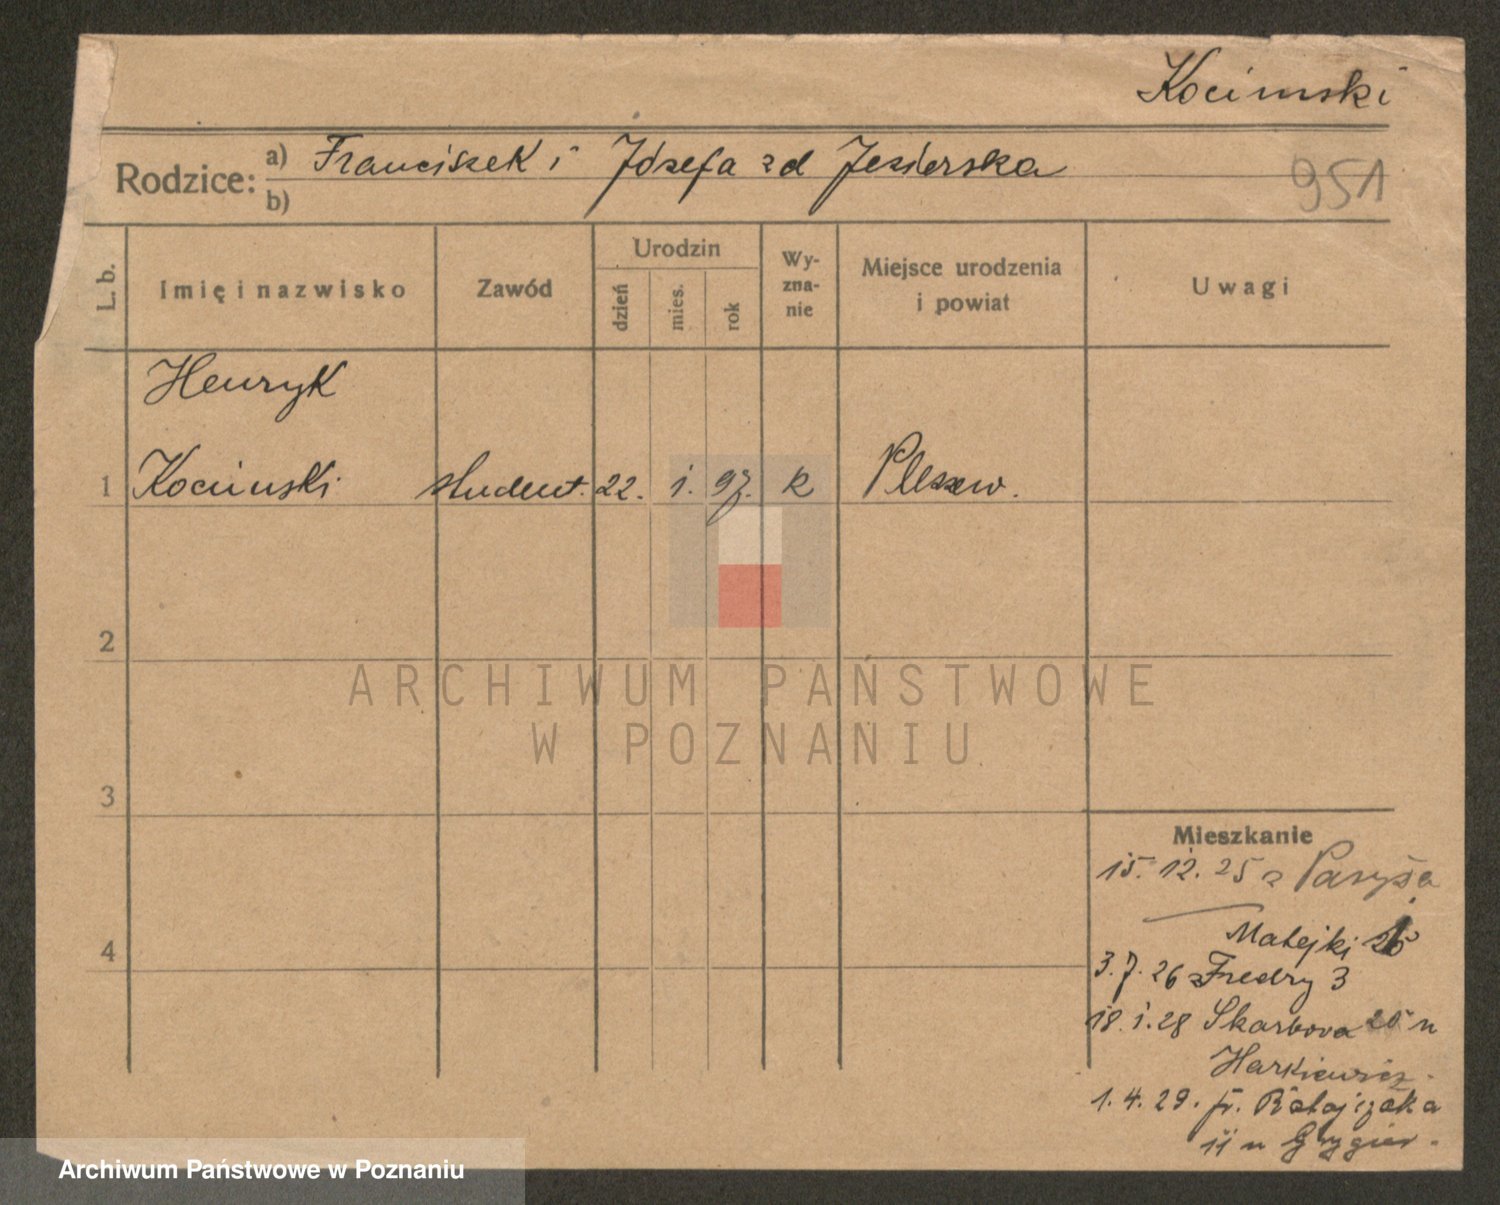 Kocimski
Rodzice: a) Franciszek i Józefa zd Jezierska
b)
951
L. b.
Imię i nazwisko
Zawód
Urodzin
dzień
mies.
rok
Wy-
zna-
nie
Miejsce urodzenia
i powiat
Uwagi
Henryk
1 Kocimski student. 22. i. 97. k Pleszew.
2
ARCHIWUM PAŃSTWOWE
W POZNANIU
3
Mieszkanie
15. 12. 25 z Paryża
Matejki
4
3. 7. 26 Fredry 3
18. i. 28 Skarbowa 20 u
Harkiewicz.
1. 4. 29. fr. Ratajczaka
11 u Grygier.
Archiwum Państwowe w Poznaniu